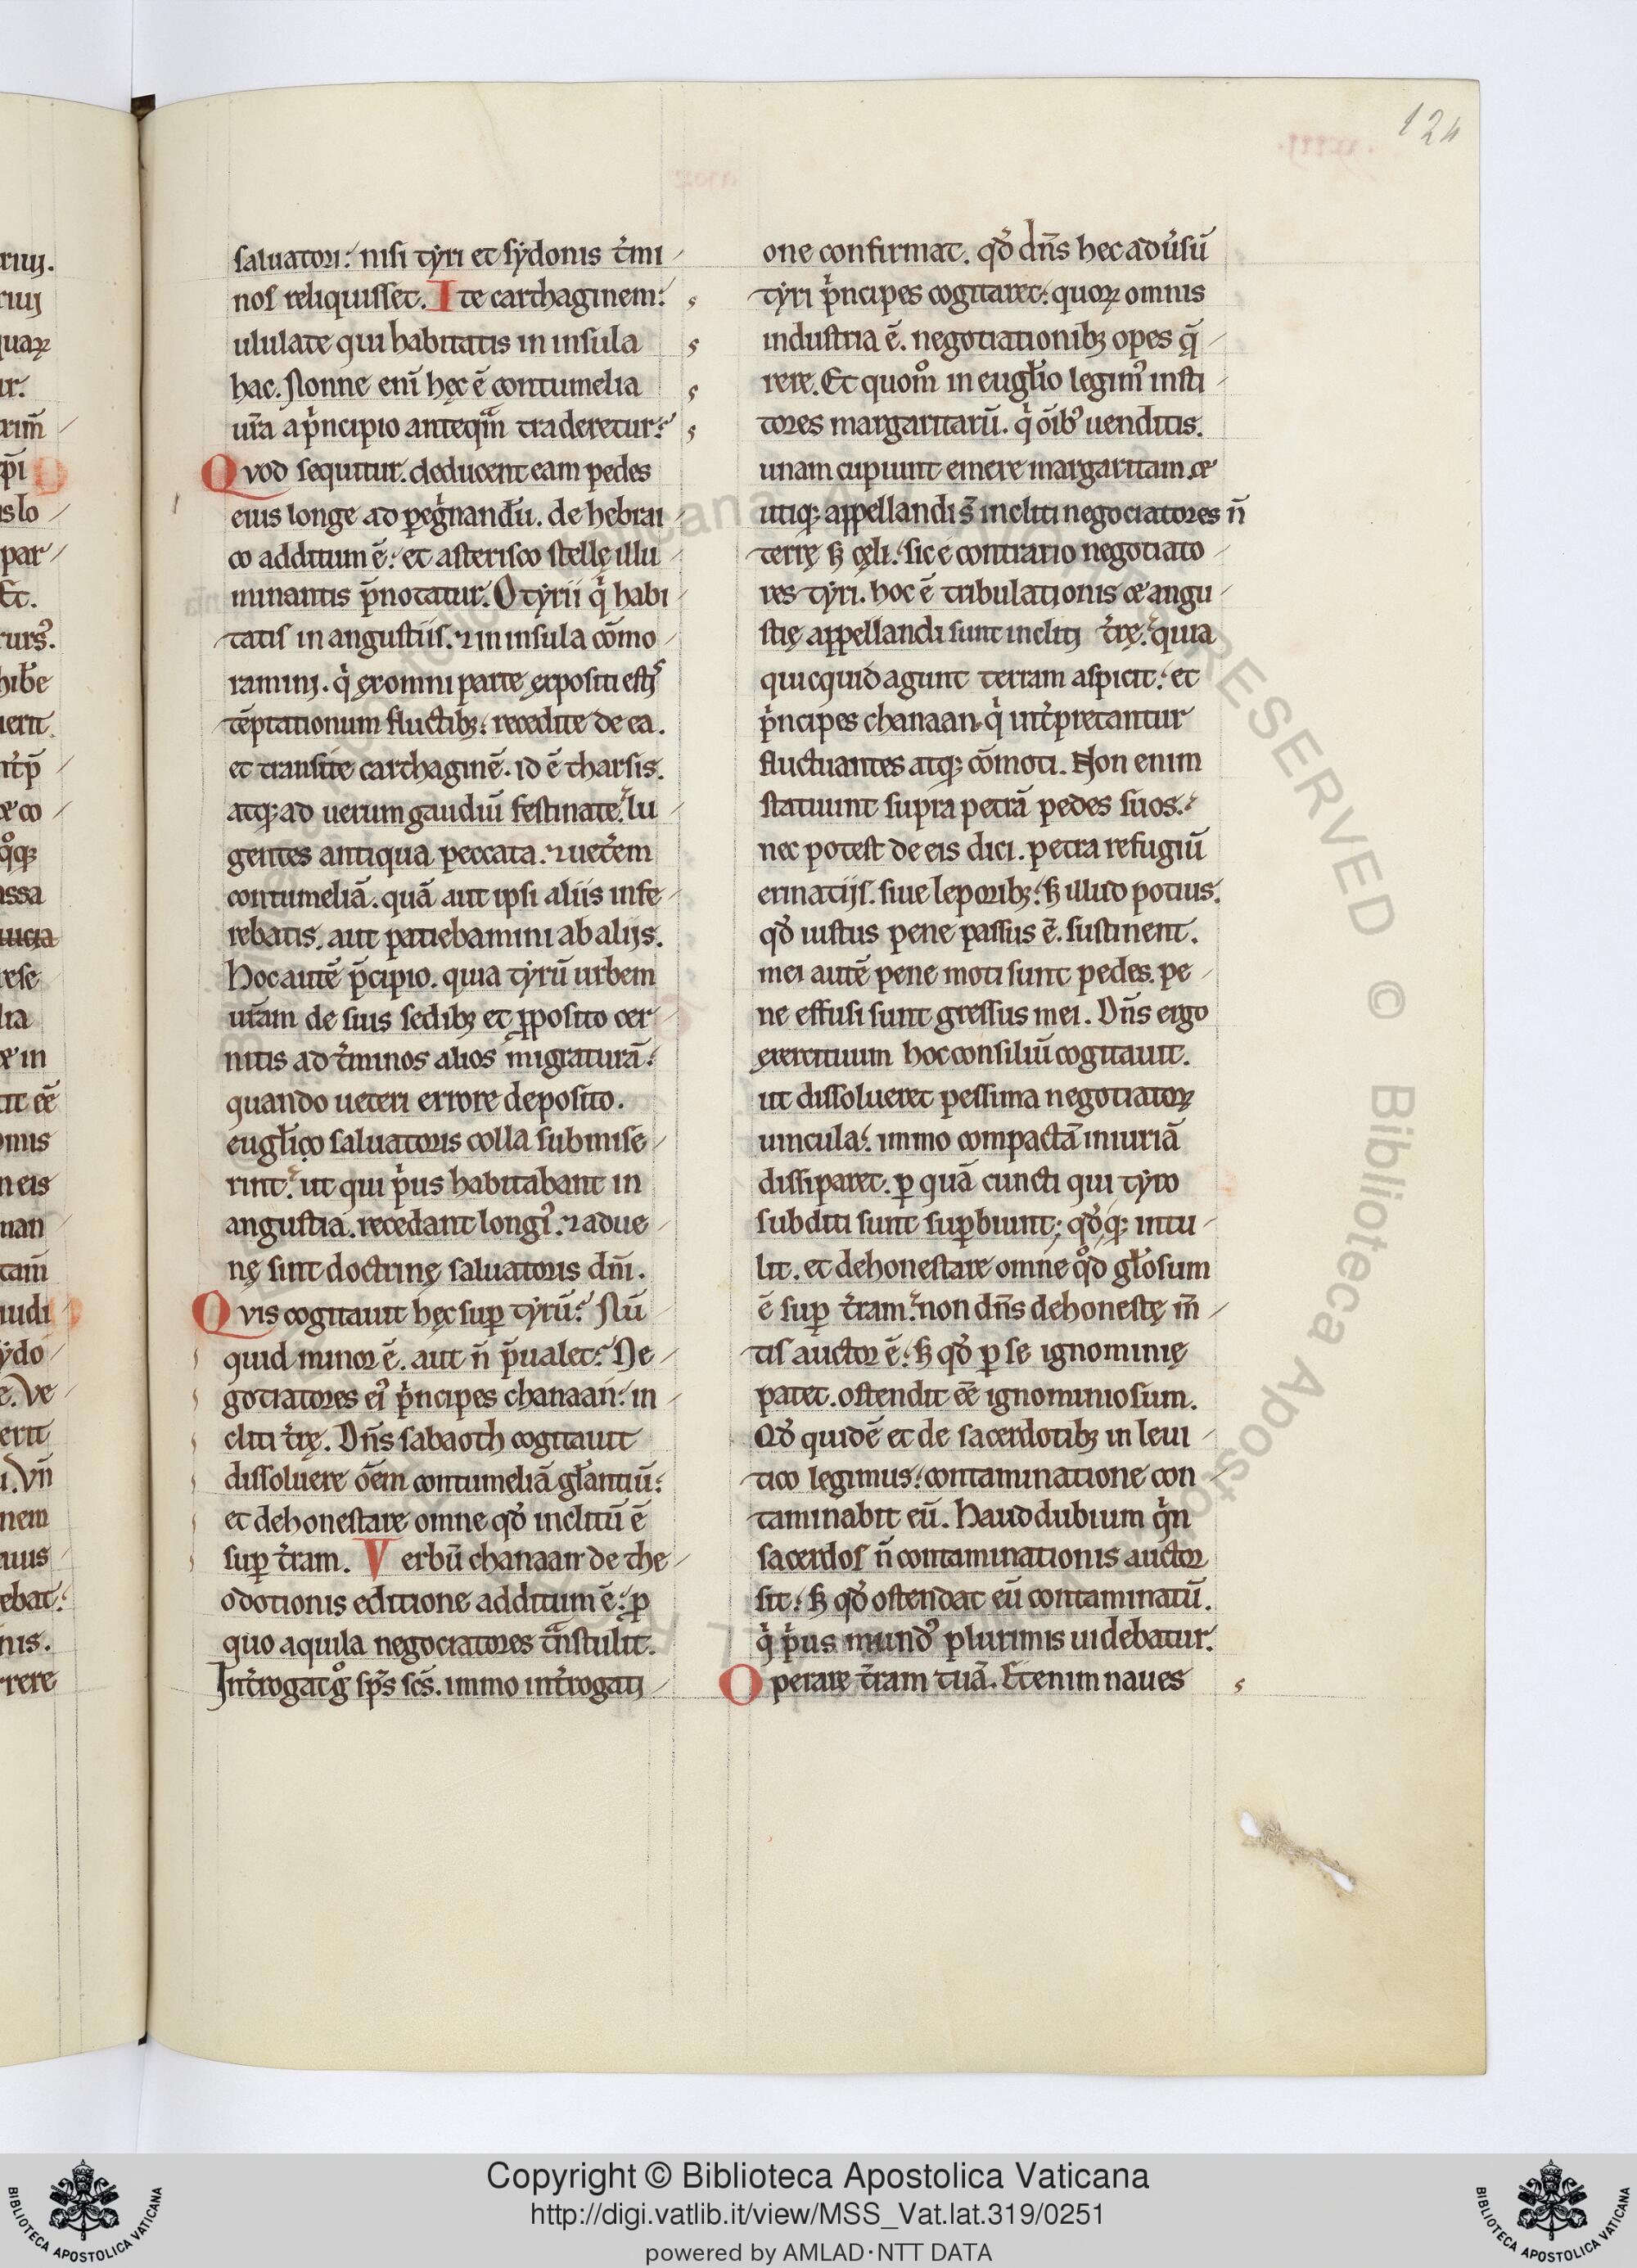 124
saluatori: nisi tyri et sydonis t̉mi
nos reliquisset. Ite carthaginem:
ululate qui habitatis in insula
hac. Nonne eni̅ hęc e̅ contumelia
ur̅a a pͥncipio anteqᷓm traderetur?
Qvod sequitur. deducent eam pedes
eius longe ad ꝑegͥnandu̅. de hebrai
co additum e̅: et asterisco stellę illu
minantis p̅notatur. O tyrii qͥ habi
tatis in angustiis. ⁊ in insula co̅mo
ramini. qͥ ex omni parte expositi estis
te̅ptationum fluctibꝫ: recedite de ea.
et transite carthagine̅. id e̅ tharsis.
atqꝫ ad uerum gaudiu̅ festinate. lu
gentes antiqua peccata. ⁊ uet̉em
contumelia̅. qua̅ aut ipsi aliis infe
rebatis, aut patiebamini ab aliis.
Hoc aute̅ p̅cipio. quia tyru̅ urbem
ur̅am de suis sedibꝫ et ꝓposito cer
nitis ad t̉minos alios migratura̅:
quando ueteri errore deposito.
eugl̅ico saluatoris colla submise
rint. ut qui pͥus habitabant in
angustia. recedant longiꝰ. ⁊ adue
nę sint doctrinę saluatoris dn̅i.
Qvis cogitauit hęc suꝑ tyru̅? Nu̅
quid minor e̅. aut n̅ p̅ualet? Ne
gotiatores eiꝰ pͥncipes chanaan: in
cliti t̉rę. Dn̅s sabaoth cogitauit
dissoluere o̅em contumelia̅ gl̅antiu̅:
et dehonestare omne qd̕ inclitu̅ e̅
suꝑ t̉ram. Verbu̅ chanaan de the
odotionis editione additum e̅: ꝓ
quo aquila negociatores tᷓnstulit.
Int̉rogat gͦ sp̅s sc̅s. immo int̉rogati
one confirmat. qd̕ dn̅s hec adu̕su̅
tyri pͥncipes cogitaret: quoꝝ omnis
industria e̅. negotiationibꝫ opes qᷓ
rere. Et quomͦ in eugl̅io legimꝰ insti
tores margaritaru̅. qͥ o̅ibꝰ uenditis.
unam cupiunt emere margaritam. &
utiqꝫ appellandi s̅ incliti negociatores n̅
terrę sꝫ cęli: sic e contrario negotiato
res tyri. hoc e̅ tribulationis & angu
stię appellandi sunt incliti t̉rę. quia
quicquid agunt terram aspicit: et
pͥncipes chanaan qͥ int̉pretantur
fluctuantes atqꝫ co̅moti. Non enim
statuunt supra petra̅ pedes suos.
nec potest de eis dici. petra refugiu̅
erinatiis. siue leporibꝫ: sꝫ illud potius.
qd̕ iustus pene passus e̅. sustinent.
mei aute̅ pene moti sunt pedes. pe
ne effusi sunt gressus mei. Dn̅s ergo
exercituum hoc consiliu̅ cogitauit.
ut dissolueret pessima negotiatoꝝ
uincula: immo compacta̅ iniuria̅
dissiparet. ꝑ qua̅ cuncti qui tyro
subditi sunt suꝑbiunt; qd̕qꝫ intu
lit. et dehonestare omne qͦd gl̅osum
e̅ suꝑ t̉ram. non dn̅s dehonestę m̅
tis auctor e̅: sꝫ qd̕ ꝑ se ignominię
patet. ostendit ee̅ ignominiosum.
Qd̕ quide̅ et de sacerdotibꝫ in leui
tico legimus: contaminatione con
taminabit eu̅. Haud dubium qͥn
sacerdos n̅ contaminationis auctor
sit: sꝫ qd̕ ostendat eu̅ contaminatu̅.
qͥ pͥus mundꝰ plurimis uidebatur.
Operare t̉ram tua̅. Etenim naues
Copyright © Biblioteca Apostolica Vaticana
http://digi.vatlib.it/view/MSS_Vat.lat.319/0251
powered by AMLAD·NTT DATA
BIBLIOTECA APOSTOLICA VATICANA
BIBLIOTECA APOSTOLICA VATICANA